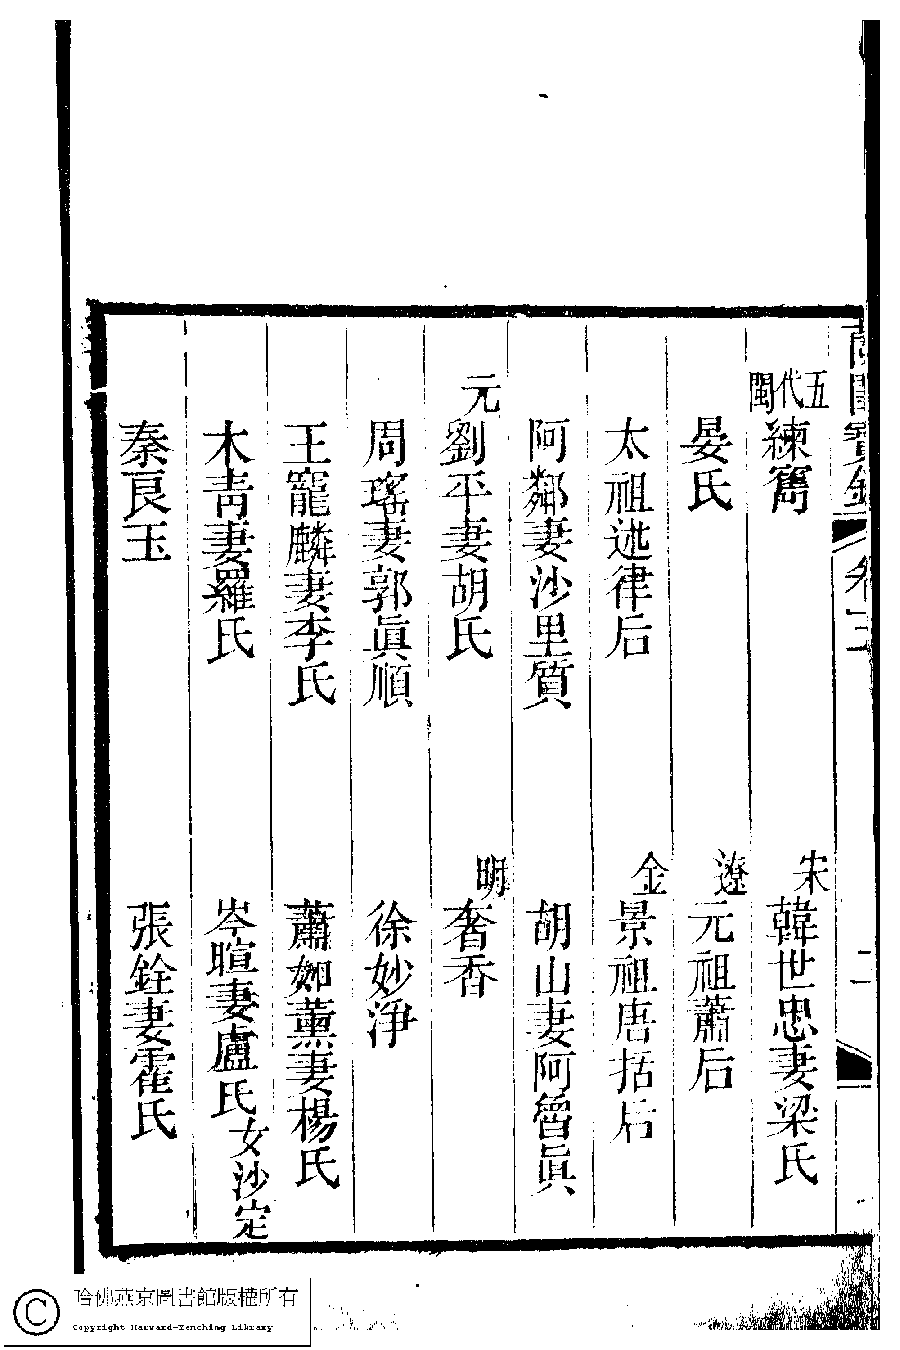 蘭閨寶錄 卷三 二
五代閩 練雋 宋 韓世忠妻梁氏
晏氏 遼 元祖蕭后
太祖述律后 金 景祖唐括后
阿鄰妻沙里質 胡山妻阿魯眞
元 劉平妻胡氏 明 奢香
周瑤妻郭眞順 徐妙淨
王寵麟妻李氏 蕭如薰妻楊氏
木青妻羅氏 岑暄妻盧氏女沙定
秦良玉 張銓妻霍氏
哈佛燕京圖書館版權所有
Copyright Harvard-Yenching Library